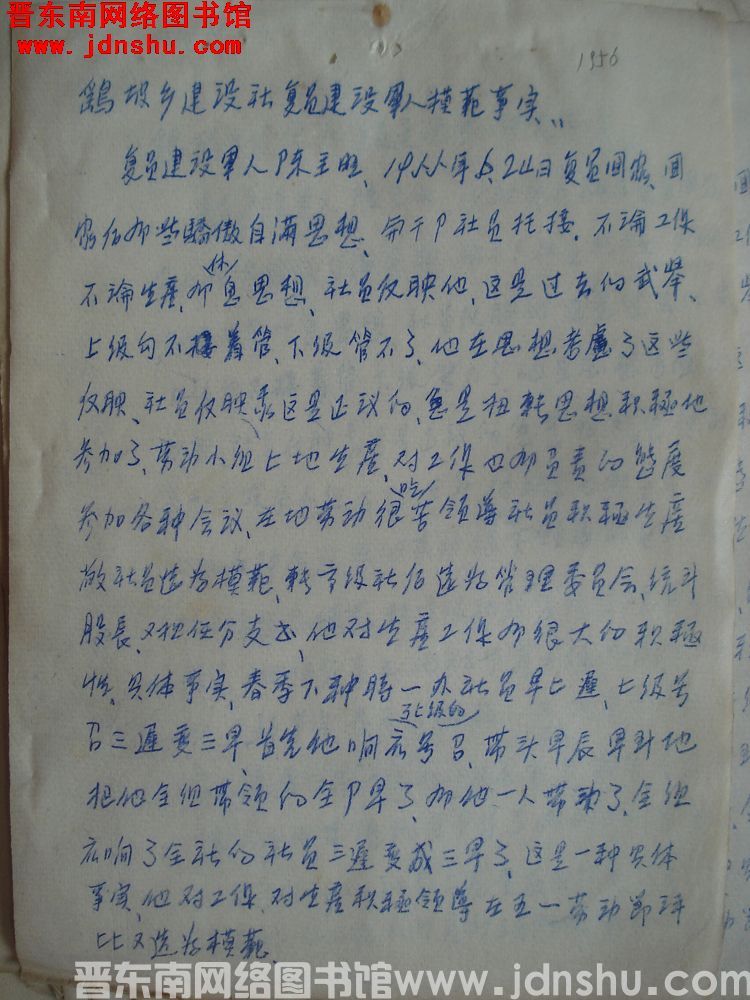 晋东南网络图书馆
www.jdnshu.com
1956
鹐坡乡建设社复员建设军人模范事实
复员建设军人陈主旺、1955年6、24日复员回家、回
家后有些骄傲自满思想、命干部社员托接、不论工作
不论生产、有休息思想、社员反映他、这是过去的武举、
上级句不接着管、下级管不了、他在思想考虑了这些
反映、社员反映是正议的、急是扭转思想积极地
参加了、劳动小组上地生产、对工作也有负责的态度
参加各种会议、在地劳动很吃苦领导社员积极生产
被社员选为模范、转高级社后选为管理委员会、统计
股长、又担任分支书、他对生产工作有很大的积极
性、具体事实、春季下种时一办社员早上迟、上级号
召三迟变三早、首先他响应了上级的号召、带头早晨早到地
把他全组带领的全部早了、有他一人带动了、全组
应响了全社的社员三迟变成三早了、这是一种具体
事实、他对工作、对生产积极领导在五一劳动节评
比又选为模范、
晋东南网络图书馆 www.jdnshu.com